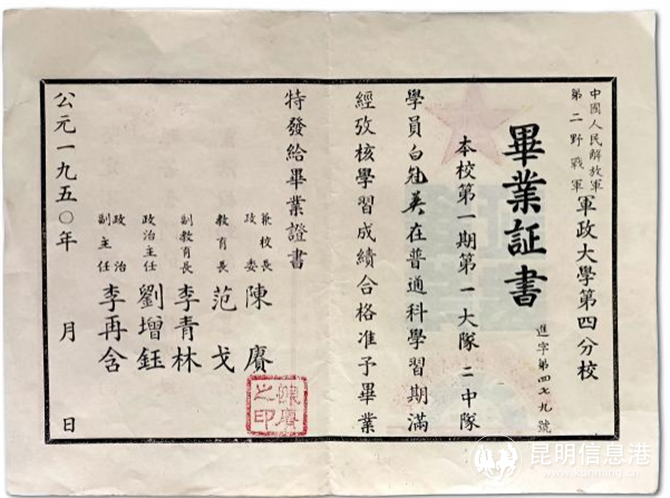 中國人民解放軍
第二野戰軍
軍政大學第四分校
畢業証書
進字第四七九號
本校第一期第一大隊二中隊
學員白冠英在普通科學習期滿
經攷核學習成績合格准予畢業
特發給畢業證書
兼校長
政委
陳賡
教育長 范戈
副教育長 李青林
政治主任 劉增鈺
政治
副主任
李再含
陳賡之印
公元一九五〇年 月 日
昆明信息港
www.kunming.cn